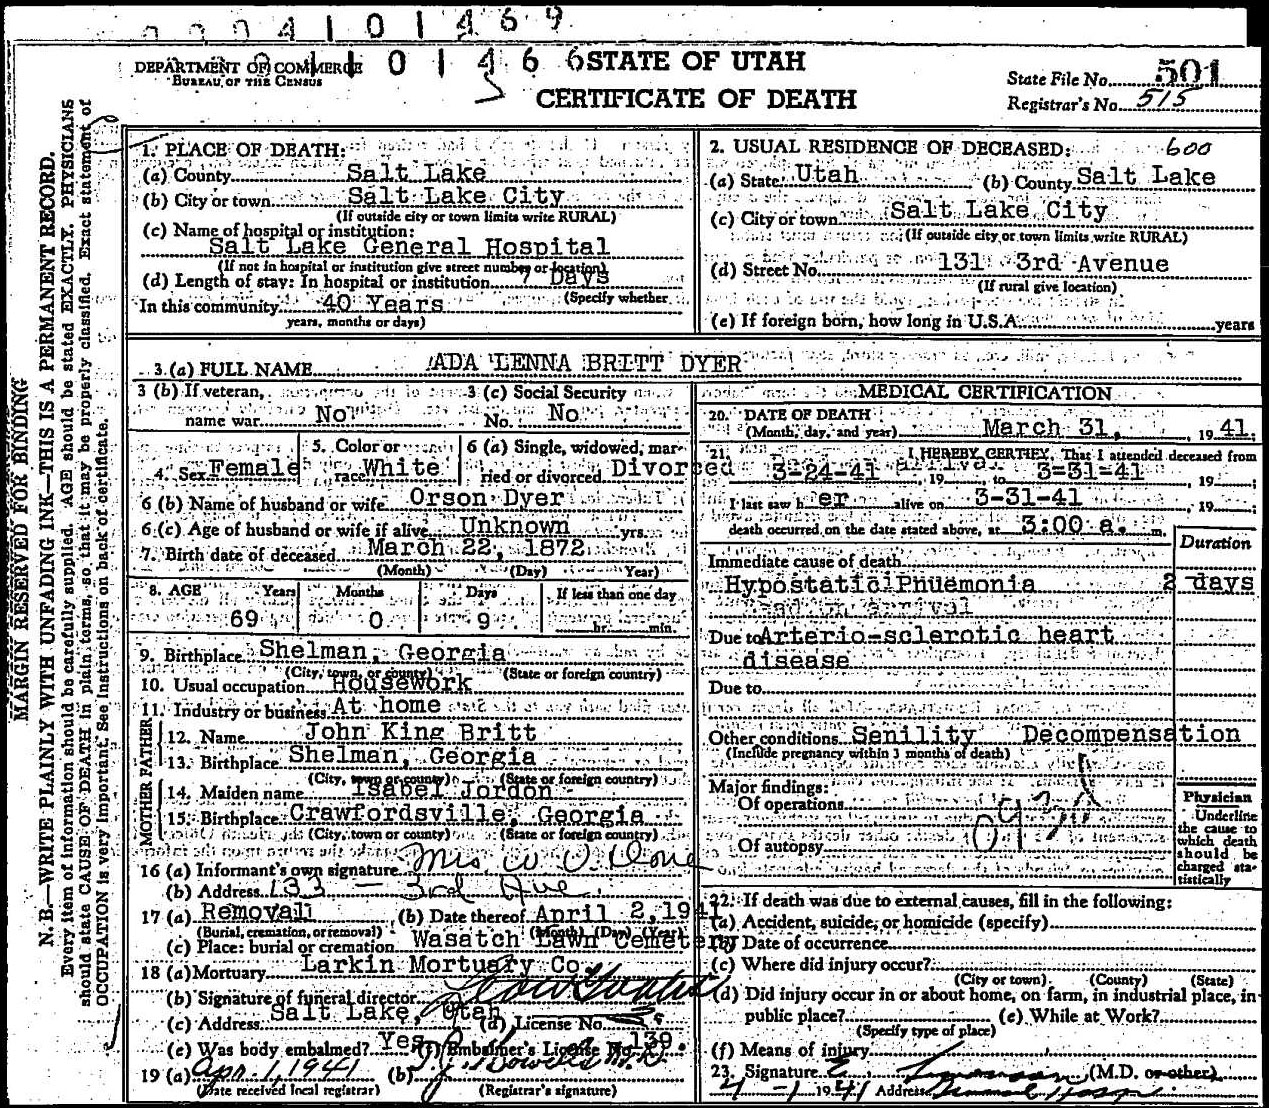 0004101469
101466
STATE OF UTAH
CERTIFICATE OF DEATH
DEPARTMENT OF COMMERCE
BUREAU OF THE CENSUS
State File No. 501
Registrar's No. 515
MARGIN RESERVED FOR BINDING
N. B.—WRITE PLAINLY WITH UNFADING INK—THIS IS A PERMANENT RECORD.
Every item of information should be carefully supplied. AGE should be stated EXACTLY. PHYSICIANS
should state CAUSE OF DEATH in plain terms, so that it may be properly classified. Exact statement of
OCCUPATION is very important. See instructions on back of certificate.
1. PLACE OF DEATH:
(a) County Salt Lake
(b) City or town Salt Lake City
(If outside city or town limits write RURAL)
(c) Name of hospital or institution:
Salt Lake General Hospital
(If not in hospital or institution give street number or location)
(d) Length of stay: In hospital or institution 7 Days
(Specify whether
In this community 40 Years
years, months or days)
2. USUAL RESIDENCE OF DECEASED: 600
(a) State Utah (b) County Salt Lake
(c) City or town Salt Lake City
(If outside city or town limits write RURAL)
(d) Street No. 131 3rd Avenue
(If rural give location)
(e) If foreign born, how long in U.S.A. years
3. (a) FULL NAME ADA LENNA BRITT DYER
3 (b) If veteran, name war No
3 (c) Social Security No. No
4. Sex Female
5. Color or race White
6 (a) Single, widowed, married or divorced Divorced
6 (b) Name of husband or wife Orson Dyer
6 (c) Age of husband or wife if alive Unknown yrs.
7. Birth date of deceased March 22, 1872
(Month) (Day) (Year)
8. AGE Years Months Days If less than one day
69 0 9 hr. min.
9. Birthplace Shelman, Georgia
(City, town, or county) (State or foreign country)
10. Usual occupation Housework
11. Industry or business At home
FATHER
12. Name John King Britt
13. Birthplace Shelman, Georgia
(City, town or county) (State or foreign country)
MOTHER
14. Maiden name Isabel Jordon
15. Birthplace Crawfordsville, Georgia
(City, town or county) (State or foreign country)
16 (a) Informant's own signature Mrs W O
(b) Address 133 — 3rd Ave
17 (a) Removal (b) Date thereof April 2, 1941
(Burial, cremation, or removal) (Month) (Day) (Year)
(c) Place: burial or cremation Wasatch Lawn Cemetery
18 (a) Mortuary Larkin Mortuary Co.
(b) Signature of funeral director
(c) Address Salt Lake, Utah (d) License No.
(e) Was body embalmed? Yes (f) Embalmer's License No. 139.
19 (a) Apr. 1, 1941 (b) M.D.
(Date received local registrar) (Registrar's signature)
MEDICAL CERTIFICATION
20. DATE OF DEATH
(Month, day, and year) March 31, 1941.
21. I HEREBY CERTIFY, That I attended deceased from
3-24-41 arrival, 19 to 3-31-41, 19 ;
I last saw h er alive on 3-31-41, 19 ;
death occurred on the date stated above, at 3:00 a. m.
Duration
Immediate cause of death
Hypostatic Pnuemonia 2 days
Due to Arterio-sclerotic heart
disease
Due to
Other conditions Senility Decompensation
(Include pregnancy within 3 months of death)
Major findings:
Of operations
Of autopsy
Physician
Underline
the cause to
which death
should be
charged sta-
tistically
22. If death was due to external causes, fill in the following:
(a) Accident, suicide, or homicide (specify)
(b) Date of occurrence
(c) Where did injury occur?
(City or town) (County) (State)
(d) Did injury occur in or about home, on farm, in industrial place, in
public place? (e) While at Work?
(Specify type of place)
(f) Means of injury
23. Signature (M.D. or other)
4-1-1941 Address